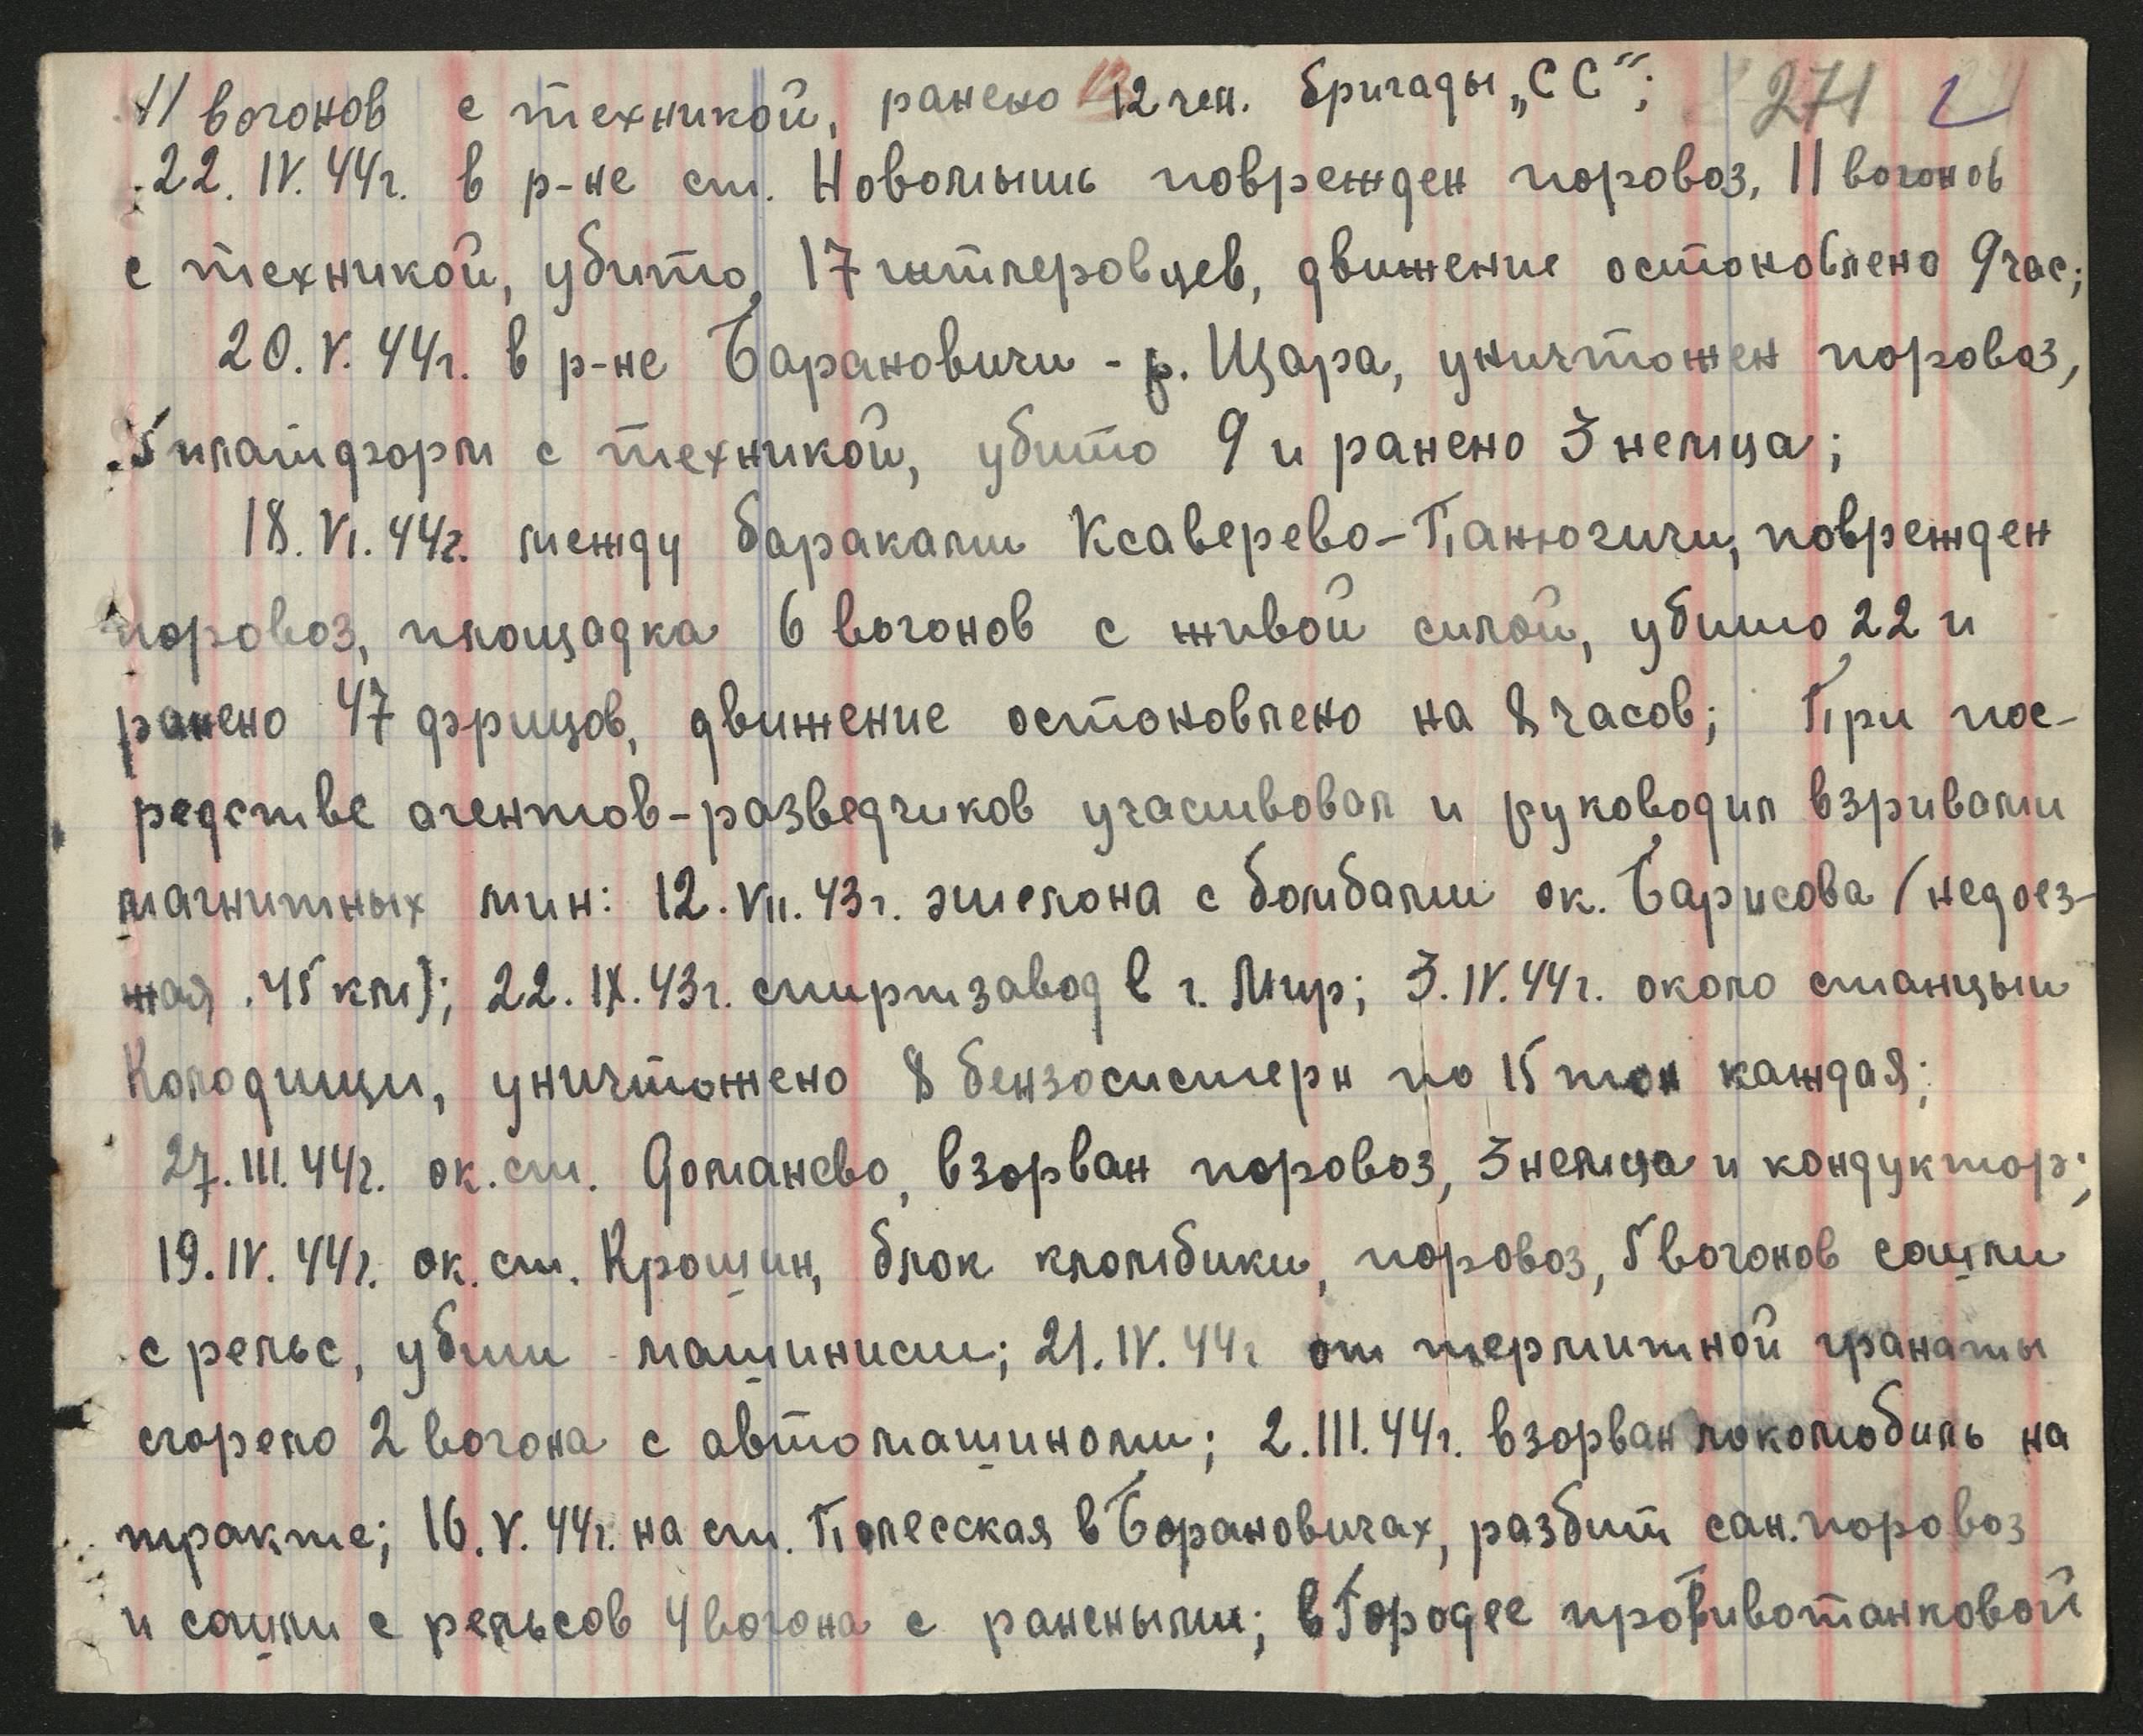 11 вогонов с техникой, ранено 12 чел. бригады „СС“; 271
22. IV. 44г. в р-не ст. Новомышь поврежден поровоз, 11 вогонов
с техникой, убито, 17 гитлеровцев, движение остоновлено 9 час;
20. V. 44г. в р-не Барановичи - р. Щара, уничтожен поровоз,
5 платформ с техникой, убито 9 и ранено 3 немца;
18. VI. 44г. между бараками Ксаверево-Панючичи, поврежден
поровоз, площадка 6 вогонов с живой силой, убито 22 и
ранено 47 фрицов, движение остоновлено на 8 часов; При пос-
редстве агентов-разведчиков учаснвовал и руководил взривами
магнитных мин: 12. VII. 43г. эшелона с бомбами ок. Барисова (недоез-
жая 45 км); 22. IX. 43г. спиртзавод в г. Мир; 3. IV. 44г. около станцыи
Колодищи, уничтожено 8 бензосистерн по 15 тон каждая;
27. III. 44г. ок. ст. Доманево, взорван поровоз, 3 немца и кондуктор;
19. IV. 44г. ок. ст. Крошин, блок кломбики, поровоз, 5 вогонов сошли
с рельс, убит машинист; 21. IV. 44г от термитной гранаты
сгорело 2 вогона с автомашиноми; 2. III. 44г. взорван локомобиль на
тракте; 16. V. 44г. на ст. Полесская в Борановичах, разбит сан. поровоз
и сошли с рельсов 4 вогона с ранеными; в Городее противотанковой